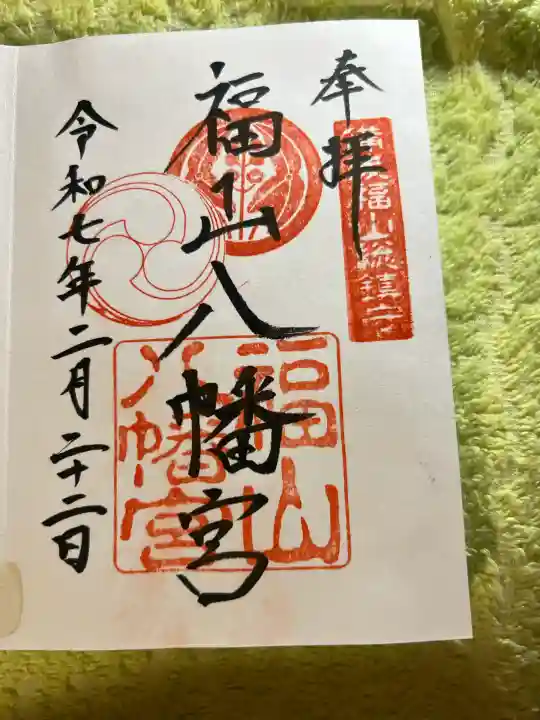 奉拝
備後福山総鎮守
福山八幡宮
福山
八幡宮
令和七年二月二十二日